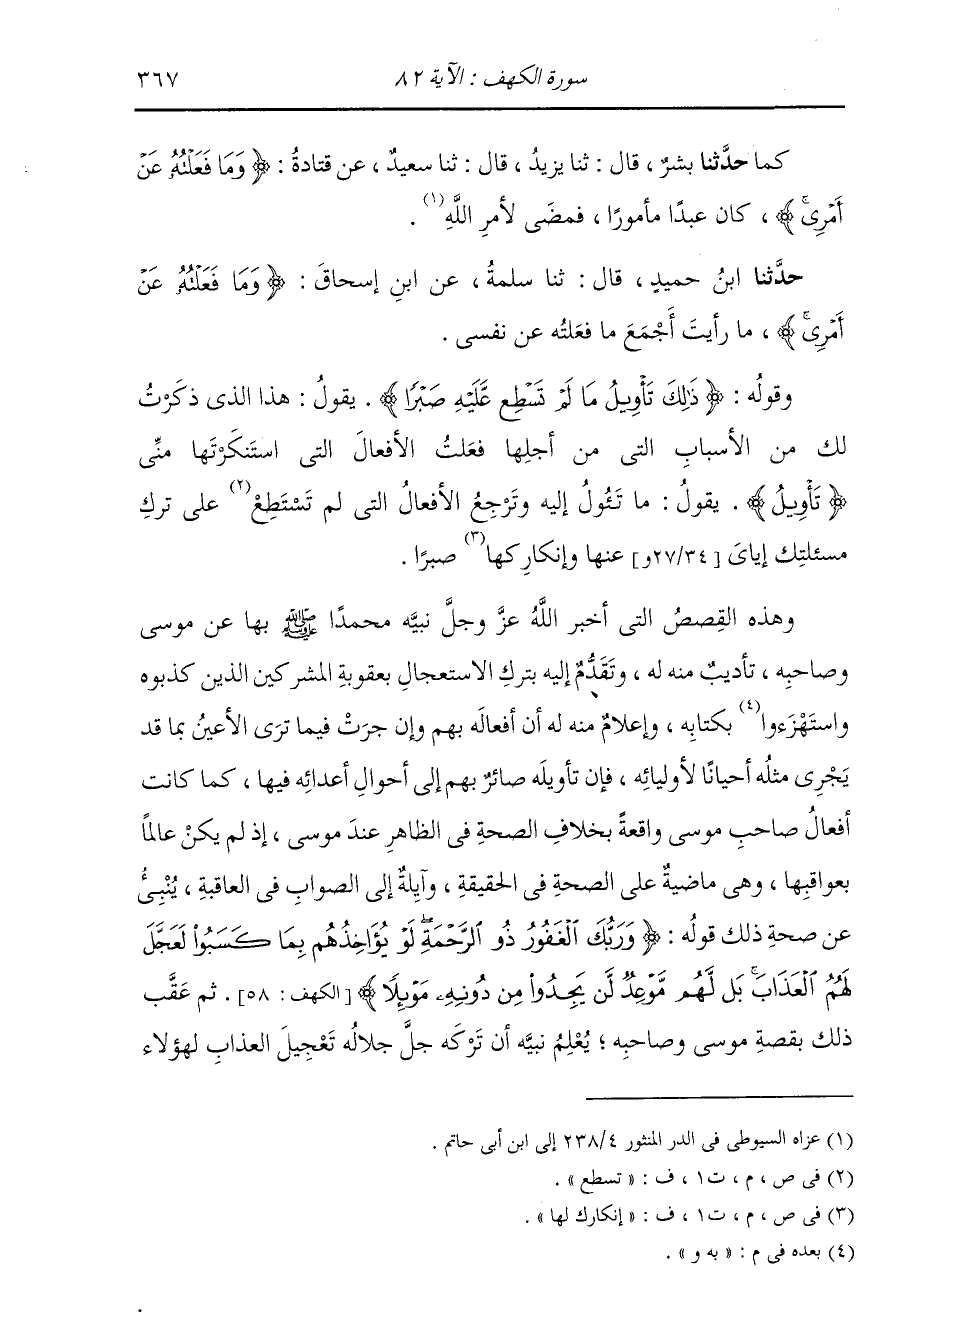 سورة الكهف : الآية ٨٢
٣٦٧
كما حدَّثنا بشرٌ ، قال : ثنا يزيدُ ، قال : ثنا سعيدٌ ، عن قتادةُ : ﴿ وَمَا فَعَلْتُهُۥ عَنْ
أَمْرِىۚ ﴾ ، كان عبدًا مأمورًا ، فمضَى لأمرِ اللَّهِ(١) .
حدَّثنا ابنُ حميدٍ ، قال : ثنا سلمةُ ، عن ابنِ إسحاقَ : ﴿ وَمَا فَعَلْتُهُۥ عَنْ
أَمْرِىۚ ﴾ ، ما رأيتَ أَجْمَعَ ما فعَلتُه عن نفسى .
وقولُه : ﴿ ذَٰلِكَ تَأْوِيلُ مَا لَمْ تَسْطِع عَّلَيْهِ صَبْرًا ﴾ . يقولُ : هذا الذى ذكَرْتُ
لك من الأسبابِ التى من أجلِها فعَلتُ الأفعالَ التى استَنكَرْتَها منِّى
﴿ تَأْوِيلُ ﴾ . يقولُ : ما تَئُولُ إليه وتَرْجِعُ الأفعالُ التى لم تَسْتَطِعْ(٢) على تركِ
مسئلتِك إياىَ [٢٧/٣٤و] عنها وإنكارِكها(٣) صبرًا .
وهذه القِصصُ التى أخبر اللَّهُ عزَّ وجلَّ نبيَّه محمدًا ﷺ بها عن موسى
وصاحبِه ، تأديبٌ منه له ، وتَقَدُّمٌ إليه بتركِ الاستعجالِ بعقوبةِ المشركين الذين كذبوه
واستَهْزَءوا(٤) بكتابِه ، وإعلامٌ منه له أن أفعالَه بهم وإن جرَتْ فيما ترَى الأعينُ بما قد
يَجْرِى مثلُه أحيانًا لأوليائِه ، فإن تأويلَه صائرٌ بهم إلى أحوالِ أعدائِه فيها ، كما كانت
أفعالُ صاحبِ موسى واقعةً بخلافِ الصحةِ فى الظاهرِ عندَ موسى ، إذ لم يكنْ عالمًا
بعواقبِها ، وهى ماضيةٌ على الصحةِ فى الحقيقةِ ، وآيِلةٌ إلى الصوابِ فى العاقبةِ ، يُنْبِئُ
عن صحةِ ذلك قولُه : ﴿ وَرَبُّكَ ٱلْغَفُورُ ذُو ٱلرَّحْمَةِۖ لَوْ يُؤَاخِذُهُم بِمَا كَسَبُوا۟ لَعَجَّلَ
لَهُمُ ٱلْعَذَابَۚ بَل لَّهُم مَّوْعِدٌ لَّن يَجِدُوا۟ مِن دُونِهِۦ مَوْئِلًا ﴾ [الكهف : ٥٨] . ثم عَقَّب
ذلك بقصةِ موسى وصاحبِه ؛ يُعْلِمُ نبيَّه أن تَرْكَه جلَّ جلالُه تَعْجيلَ العذابِ لهؤلاء
(١) عزاه السيوطى فى الدر المنثور ٢٣٨/٤ إلى ابن أبى حاتم .
(٢) فى ص ، م ، ت١ ، ف : « تسطع » .
(٣) فى ص ، م ، ت١ ، ف : « إنكارك لها » .
(٤) بعده فى م : « به و » .